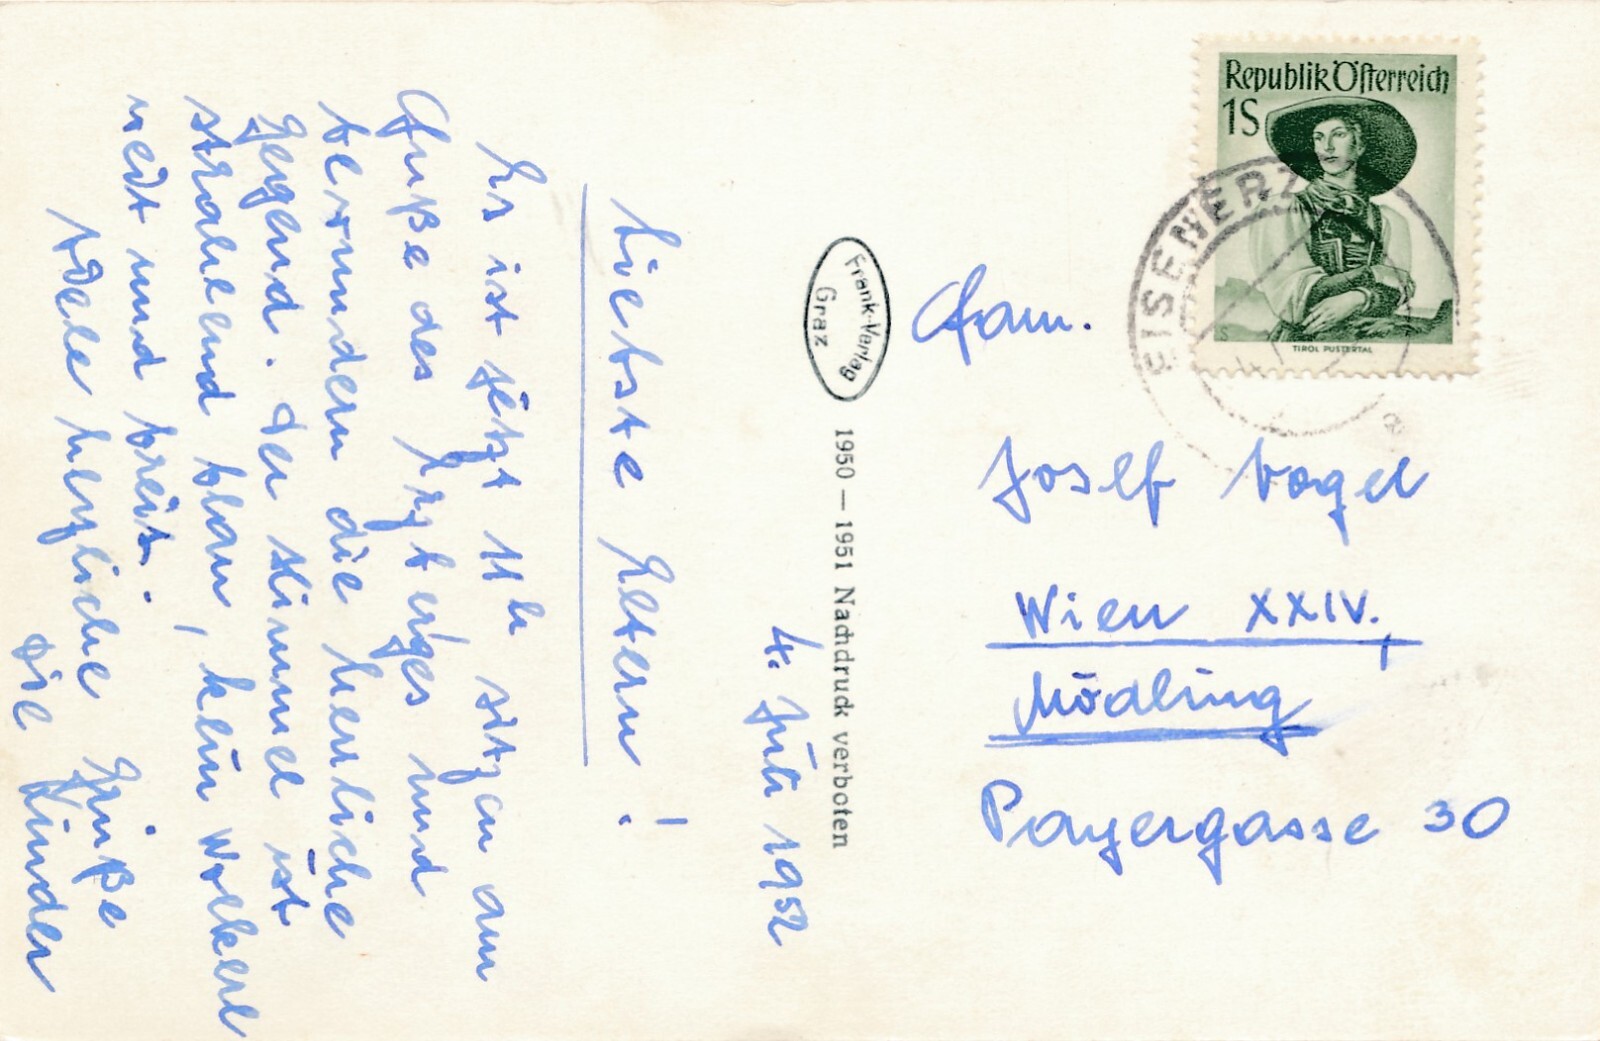 4. Juli 1952
Liebste Eltern!
Es ist jetzt 11h sitzen am
Fuße des Erzberges und
bewundern die herrliche
Gegend. Der Himmel ist
strahlend blau, kein Wolkerl
weit und breit.
Viele herzliche Grüße
die Kinder
Frank-Verlag
Graz
1950 — 1951 Nachdruck verboten
Republik Österreich
1S
TIROL PUSTERTAL
EISENERZ
Fam.
Josef Vogel
Wien XXIV.,
Mödling
Payergasse 30